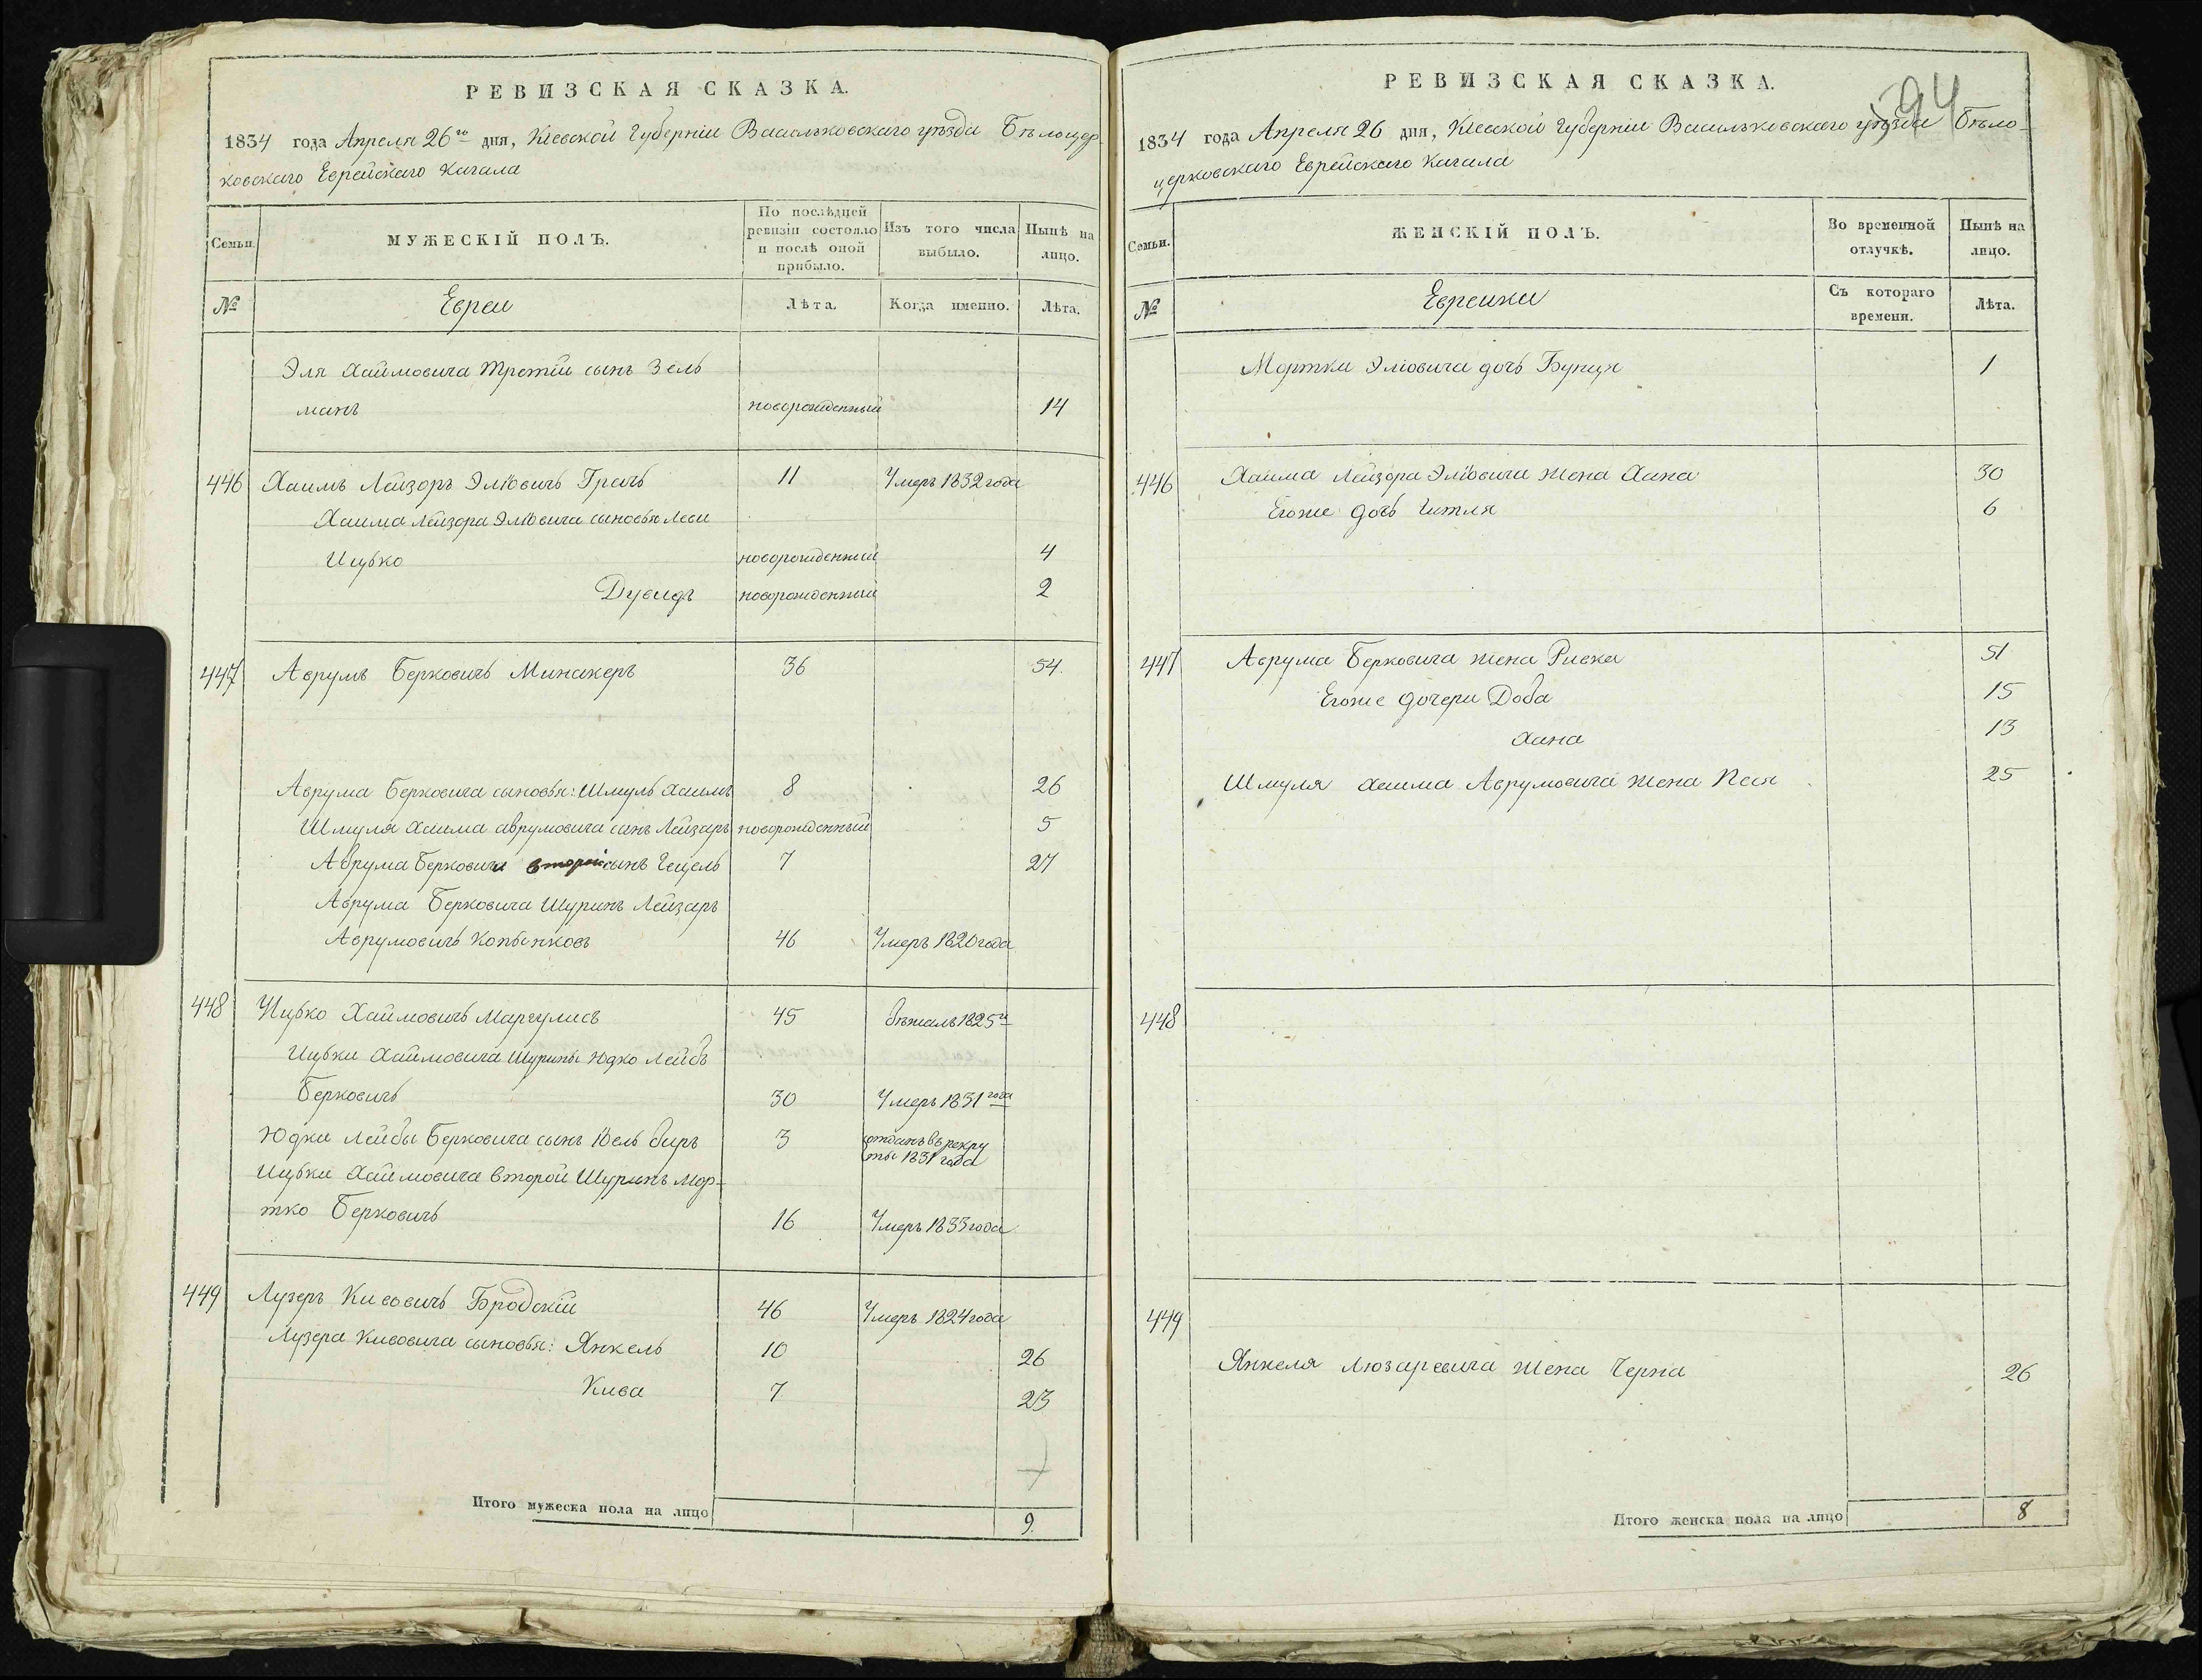 РЕВИЗСКАЯ СКАЗКА.
1834 года Апреля 26го дня, Кіевской Губерніи Васильковскаго уѣзда Бѣлоцер-
ковскаго Еврейскаго Кагала
Семьи.
МУЖЕСКІЙ ПОЛЪ.
По послѣдней ревизіи состояло и послѣ оной прибыло.
Изъ того числа выбыло.
Нынѣ на лицо.
№
Евреи
Лѣта.
Когда именно.
Лѣта.
Эля Хаймовича третій сынъ Зель
манъ новорожденный 14
446 Хаимъ Лейзоръ Эліовичъ Гречъ 11 Умеръ 1832 года
Хаима Лейзора Эліовича сыновья Леви
Ицько новорожденный 4
Дувидъ новорожденный 2
447 Аврумъ Берковичъ Минакеръ 36 54.
Аврума Берковича сыновья: Шмуль Хаимъ 8 26
Шмуля Хаима Аврумовича сынъ Лейзаръ новорожденный 5
Аврума Берковича второй сынъ Гецель 7 27
Аврума Берковича Шуринъ Лейзаръ
Аврумовичъ 46 Умеръ 1820 года
448 Ицько Хаймовичъ Маргулисъ 45 бѣжалъ 1825го
Ицьки Хаймовича Шурины Юдко Лейбъ
Берковичъ 30 Умеръ 1831 года
Юдки Лейбы Берковича сынъ Бель биръ 3 отданъ въ рекру
ты 1831 года
Ицьки Хаймовича второй Шуринъ Мор-
тко Берковичъ 16 Умеръ 1833 года
449 Лузеръ Кивовичъ Бродскій 46 Умеръ 1824 года
Лузера Кивовича сыновья: Янкель 10 26
Кива 7 23
Итого мужеска пола на лицо 9.
94
РЕВИЗСКАЯ СКАЗКА.
1834 года Апреля 26 дня, Кіевской Губерніи Васильковскаго уѣзда Бѣло-
церковскаго Еврейскаго Кагала
Семьи.
ЖЕНСКІЙ ПОЛЪ.
Во временной отлучкѣ.
Нынѣ на лицо.
№
Еврейки
Съ котораго времени.
Лѣта.
Мортки Эліовича дочь Бунця 1
446 Хаима Лейзора Эліовича жена Хана 30
Егоже дочь Гитля 6
447 Аврума Берковича жена Ривка 51
Егоже дочери Доба 15
Хана 13
Шмуля Хаима Аврумовича жена Песя 25
448
449
Янкеля Люзаревича жена Черна 26
Итого женска пола на лицо 8